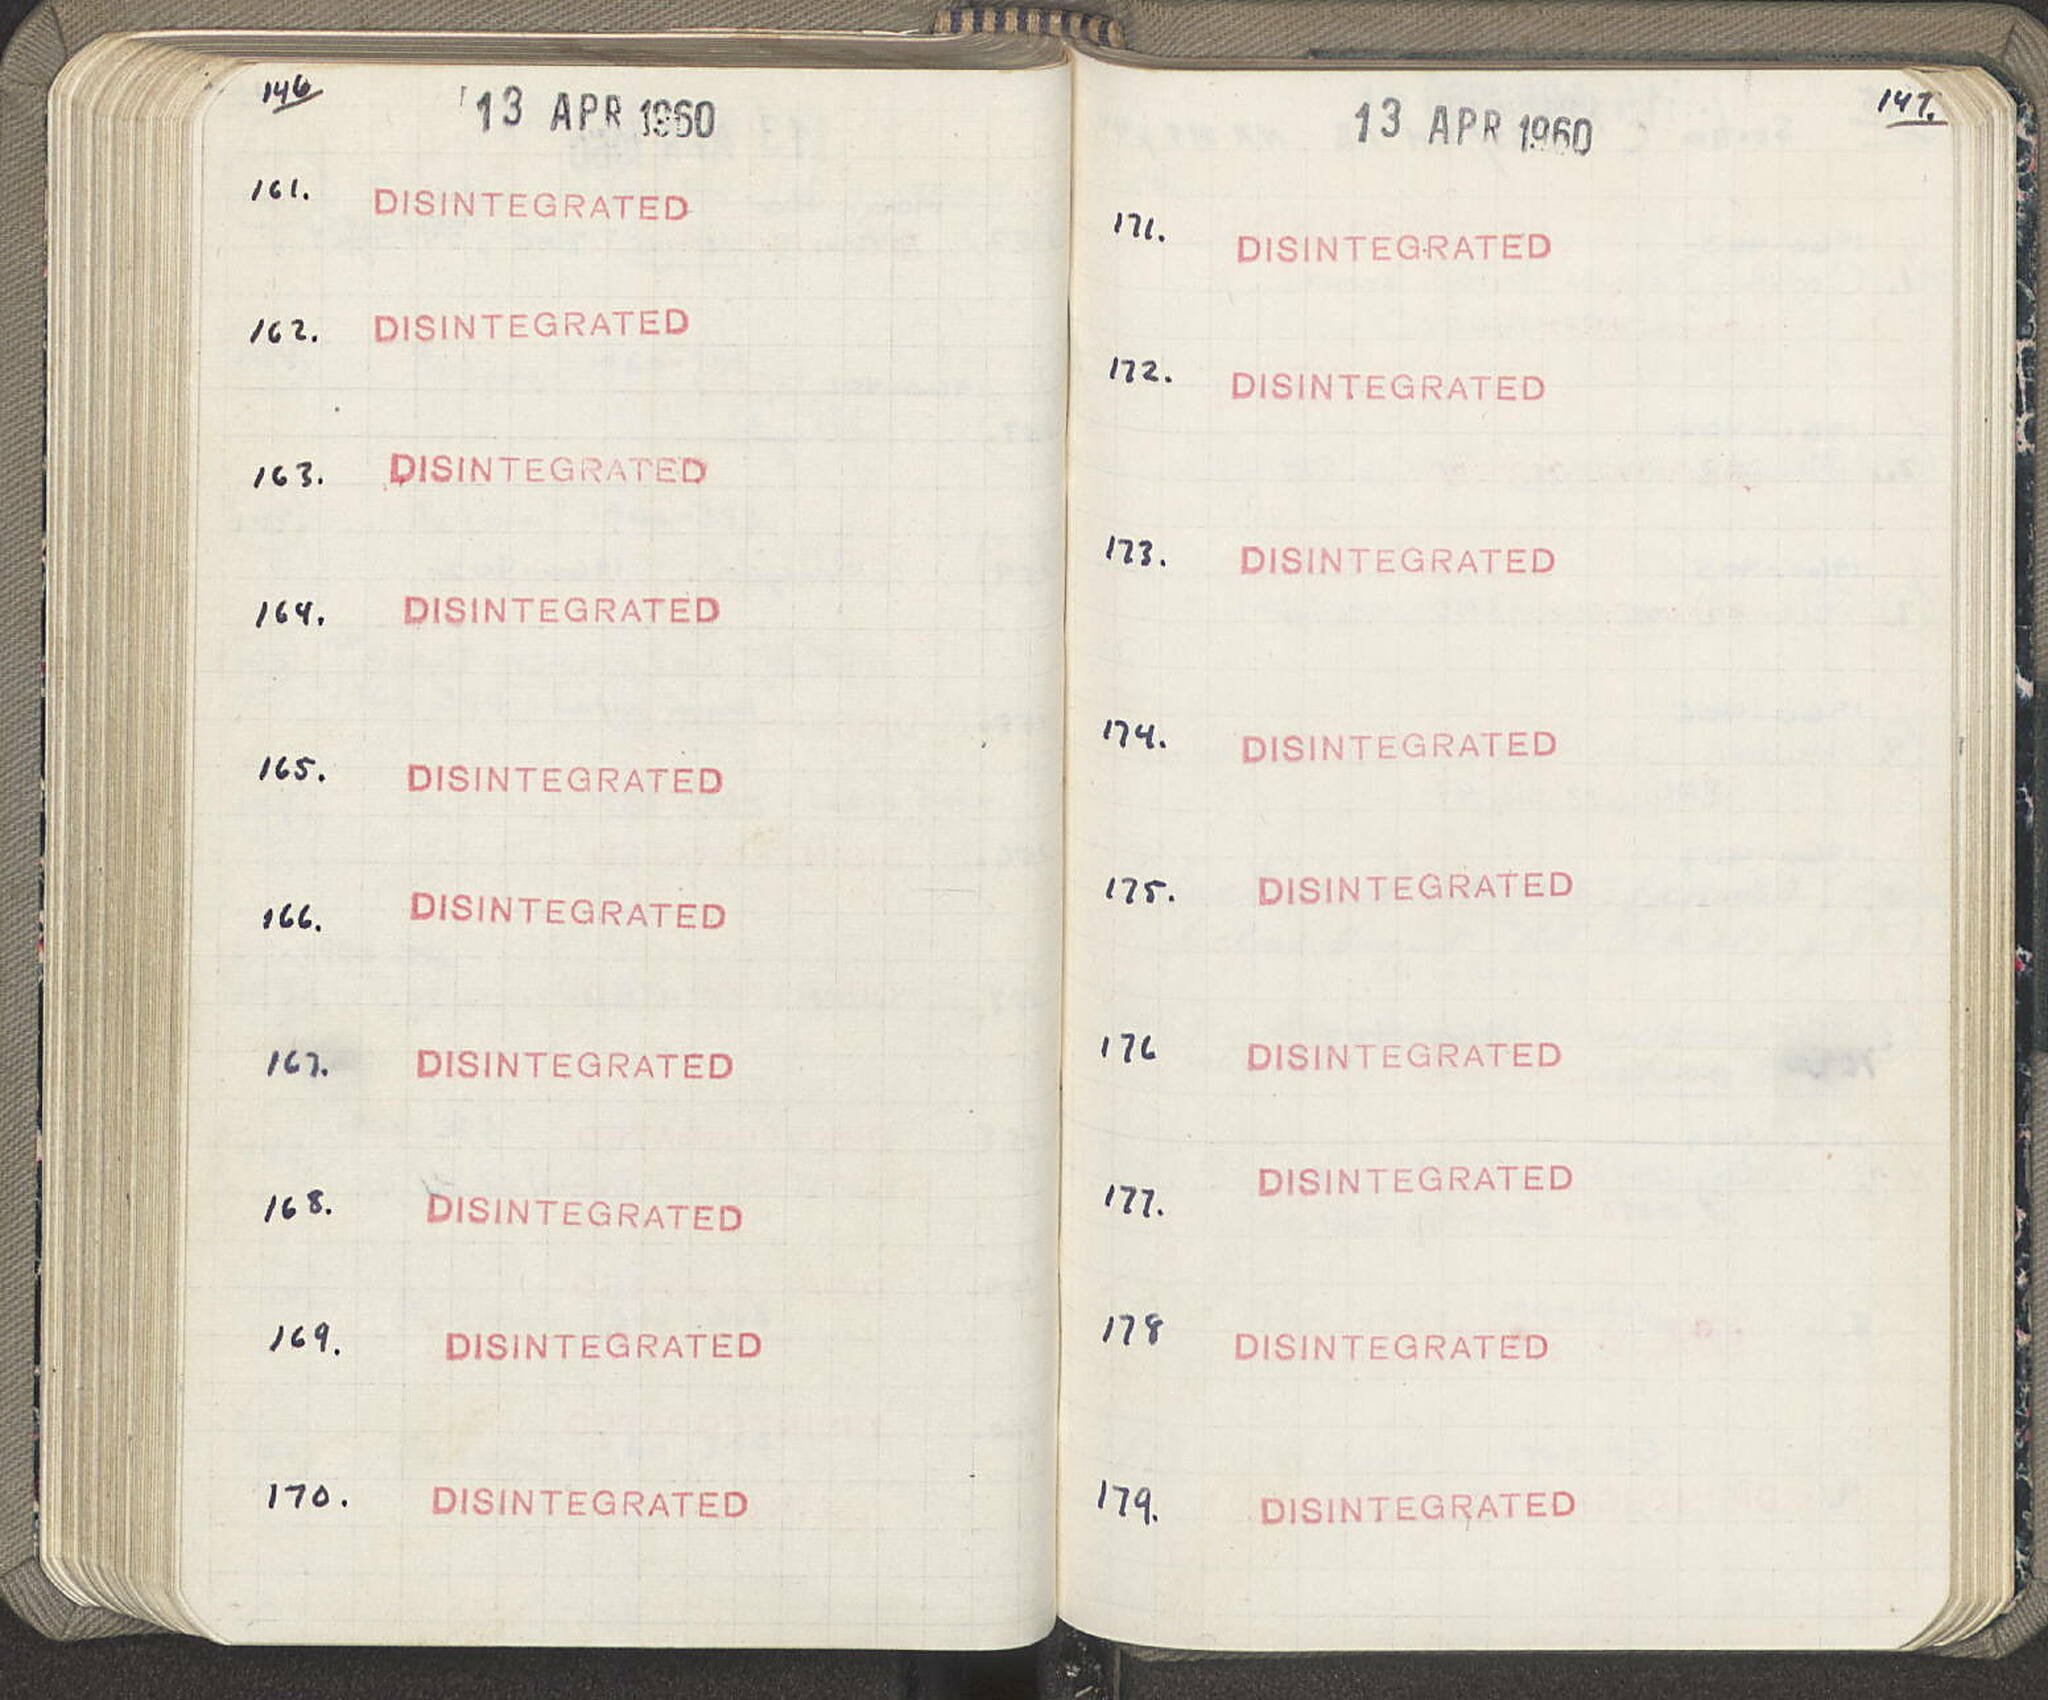 146
13 APR 1960
161. DISINTEGRATED
162. DISINTEGRATED
163. DISINTEGRATED
164. DISINTEGRATED
165. DISINTEGRATED
166. DISINTEGRATED
167. DISINTEGRATED
168. DISINTEGRATED
169. DISINTEGRATED
170. DISINTEGRATED
147.
13 APR 1960
171. DISINTEGRATED
172. DISINTEGRATED
173. DISINTEGRATED
174. DISINTEGRATED
175. DISINTEGRATED
176 DISINTEGRATED
177. DISINTEGRATED
178 DISINTEGRATED
179. DISINTEGRATED